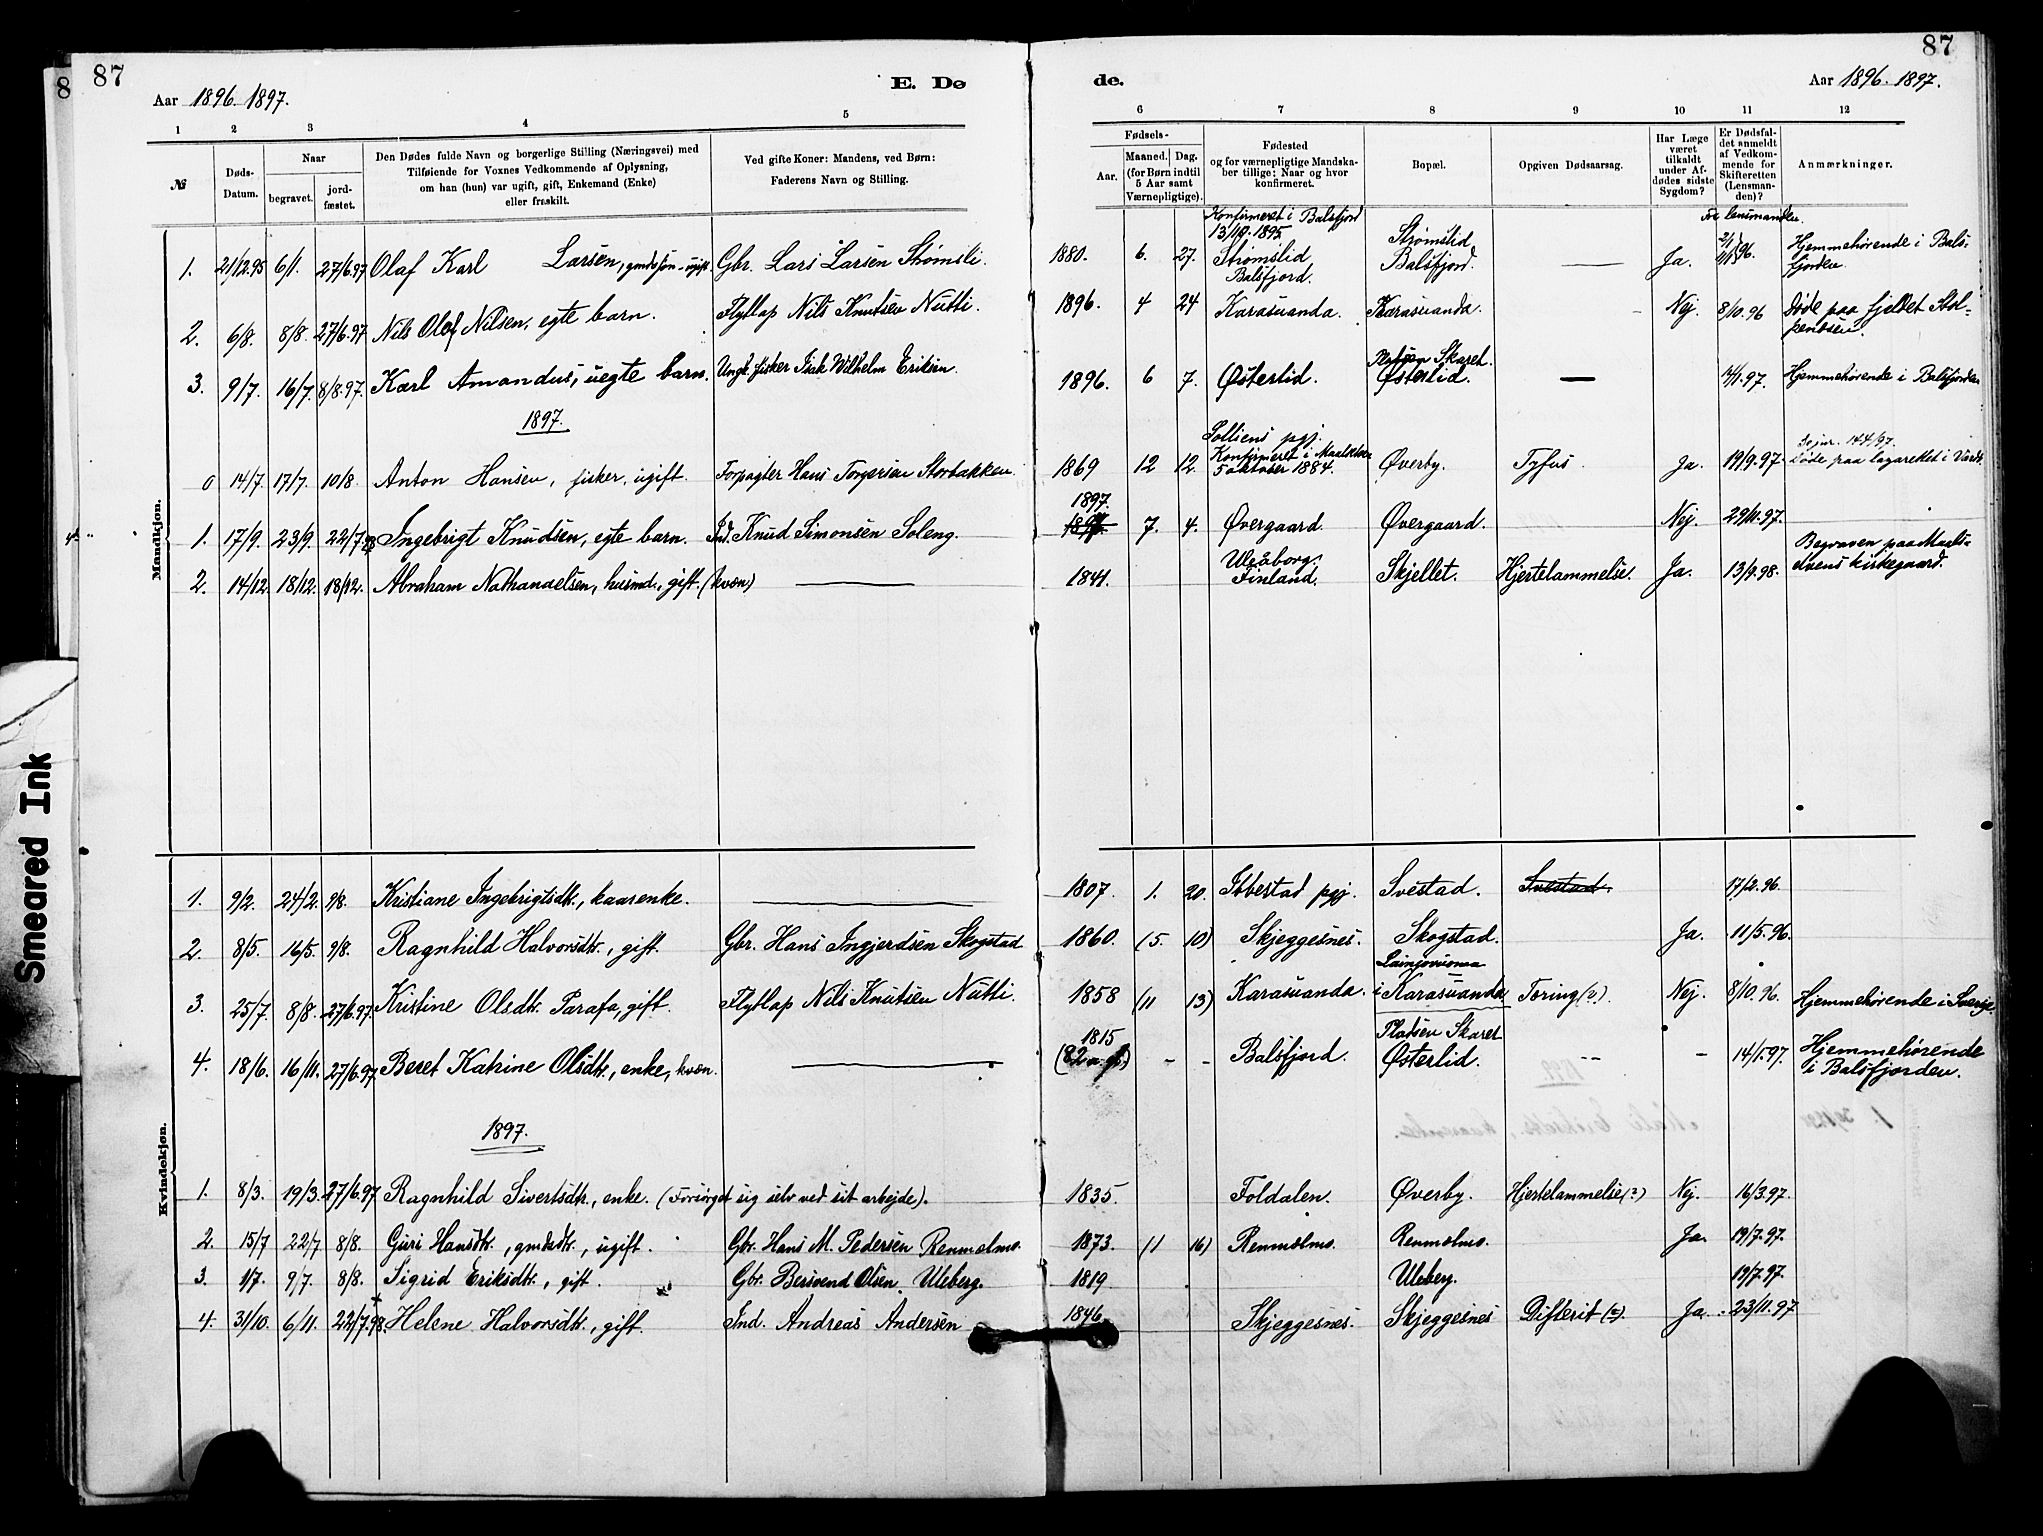 87
Aar 1896. 1897.
E. Dø
1 2 3 4 5
№
Døds-
Datum.
Naar
begravet.
jord-
fæstet.
Den Dødes fulde Navn og borgerlige Stilling (Næringsvei) med
Tilføiende for Voxnes Vedkommende af Oplysning,
om han (hun) var ugift, gift, Enkemand (Enke)
eller fraskilt.
Ved gifte Koner: Mandens, ved Børn:
Faderens Navn og Stilling.
Mandkjøn.
1. 21/12.95 6/1. 27/6.97 Olaf Karl Larsen, ugift. Gbr. Lars Larsen Strømsli.
2. 6/8. 8/8. 27/6.97 Nils Olof Nilsen, egte barn. Flytlap Nils Knutsen Nutti.
3. 9/7. 16/7. 8/8.97. Karl Amandus, uegte barn. Ungk. fisker Isak Wilhelm Eriksen.
1897.
0 14/7. 17/7. 10/8. Anton Hansen, fisker, ugift. Forpagter Hans Torgersen Storbakken.
1. 17/9. 23/9. 22/7.98 Ingebrigt Knudsen, egte barn. Ind. Knud Simonsen Soleng.
2. 14/12. 18/12. 18/12. Abraham Nathanaelsen, husmd., gift. (kvæn)
Kvindekjøn.
1. 9/2. 24/2. 9/8. Kristiane Ingebrigtsdtr., kaarenke.
2. 8/5. 16/5. 9/8. Ragnhild Halvorsdtr., gift. Gbr. Hans Ingjerdsen Skogstad
3. 25/7. 8/8. 27/6.97. Kristine Olsdtr. Parafa, gift. Flytlap Nils Knutsen Nutti.
4. 18/6. 16/11. 27/6.97 Beret Katrine Olsdtr., enke, kvæn.
1897.
1. 8/3. 19/3. 27/6.97 Ragnhild Sivertsdtr., enke. (Forsørget sig selv ved sit arbejde).
2. 15/7 22/7 8/8. Guri Hansdtr., gmdsdtr., ugift. Gbr. Hans M. Pedersen Renmælmo.
3. 1/7. 9/7. 8/8. Sigrid Eriksdtr., gift. Gbr. Bersvend Olsen Uleberg.
4. 31/10. 6/11. 22/7.98. Helene Halvorsdtr., gift. Ind. Andreas Andersen
Smeared Ink
87
de.
Aar 1896. 1897.
6 7 8 9 10 11 12
Fødsels-
Aar.
Maaned. Dag.
(for Børn indtil
5 Aar samt
Værnepligtige).
Fødested
og for værnepligtige Mandska-
ber tillige: Naar og hvor
konfirmeret.
Bopæl.
Opgiven Dødsaarsag.
Har Læge
været
tilkaldt
under Af-
dødes sidste
Sygdom?
Er Dødsfal-
det anmeldt
af Vedkom-
mende for
Skifteretten
(Lensman-
den)?
Anmærkninger.
Konfirmeret i Balsfjord
13/10. 1895. Strømslid For lensmanden.
1880. 6. 27. Strømslid Balsfjord. Ja. Hjemmehørende i Bals-
Balsfjord. fjorden.
1896. 4 24 Karasuanda. Karasuanda. Nej. 8/10.96 Døde paa fjeldet
Skaret.
1896. 6 7. Østerlid. Østerlid. 14/1.97. Hjemmehørende i Balsfjorden
pgj.
Konfirmeret i Maalselven
1869 12 12. 5 oktober 1884. Øverby. Tyfus. Ja. 19/9.97. Døde paa lazarettet i Vardø.
1897.
7. 4. Øvergaard. Øvergaard. Nej. 29/11.97.
Uleåborg. Begraven paa Maals-
1841. Finland. Skjellet. Hjertelammelse. Ja. 13/1.98. elvens kirkegaard.
1807. 1. 20. Ibbestad pgj. Svestad. Svestad. 17/2.96.
1860. (5. 10) Skjeggesnes. Skogstad. Ja. 11/5.96.
Lainjovuoma
1858 (11 13) Karasuanda. i Karasuanda Tæring (?). Nej. 8/10.96. Hjemmehørende i Sverige.
1815 Pladsen Skaret
(82 a. gl.) - - Balsfjord. Østerlid. - 14/1.97. Hjemmehørende
i Balsfjorden.
1835. Foldalen. Øverby. Hjertelammelse (?) Nej. 16/3.97.
1873. (1 16) Renmælmo. Renmælmo. Ja. 19/7.97.
1819 Uleberg. 19/7.97.
1846 Skjeggesnes. Skjeggesnes Difterit (?). Ja. 23/11.97